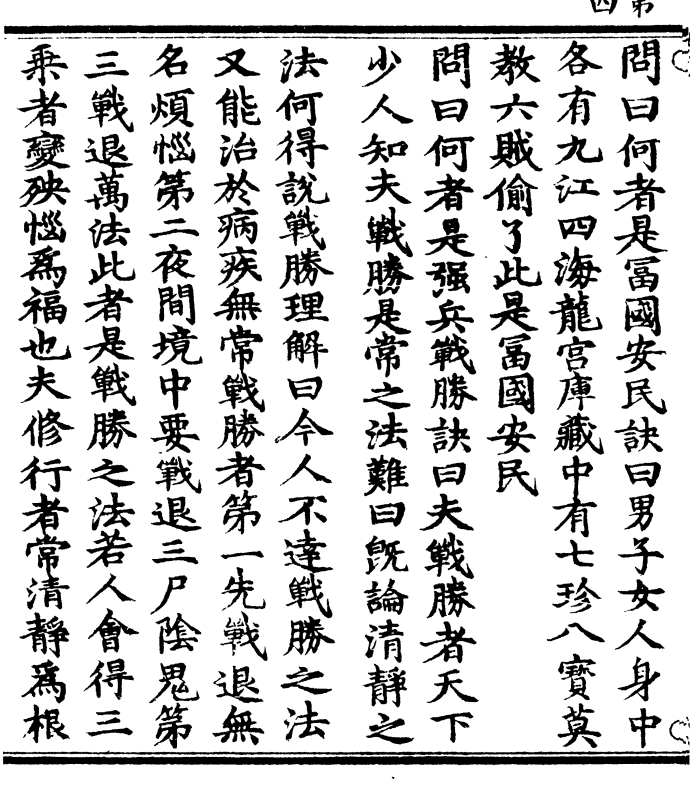 第四
問曰何者是冨國安民訣曰男子女人身中
各有九江四海龍宫庫藏中有七珍八寳莫
教六賊偷了此是冨國安民
問曰何者是强兵戰勝訣曰夫戰勝者天下
少人知夫戰勝是常之法難曰旣論清靜之
法何得説戰勝理解曰今人不達戰勝之法
又能治於病疾無常戰勝者第一先戰退無
名煩惱第二夜間境中要戰退三尸陰鬼第
三戰退萬法此者是戰勝之法若人會得三
乘者變殃惱爲福也夫修行者常清靜爲根